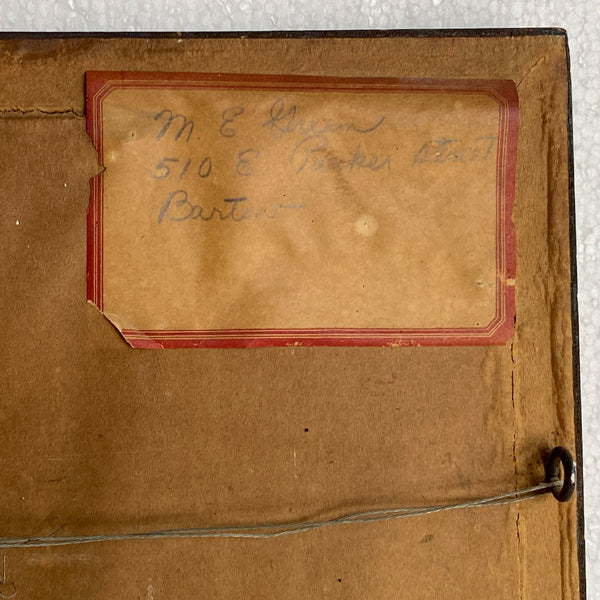 M. E Green
510 E Parker Street
Bartow